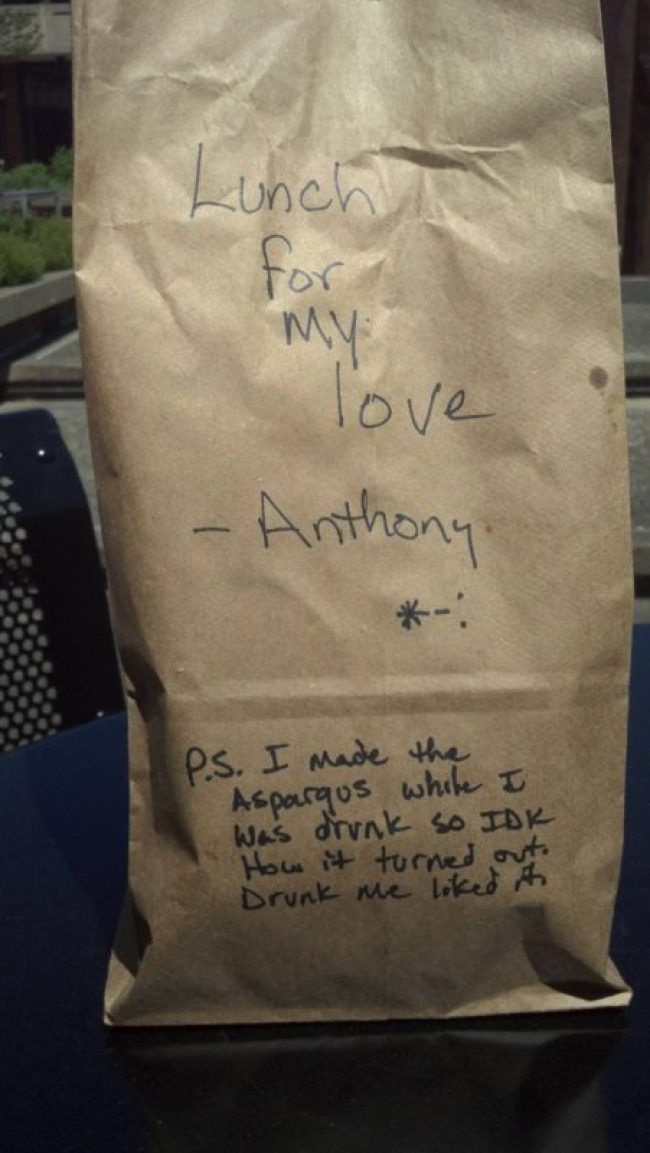 Lunch
for
my
love
- Anthony
*-:
P.S. I made the
Aspargus while I
was drunk so IDK
How it turned out.
Drunk me liked it.